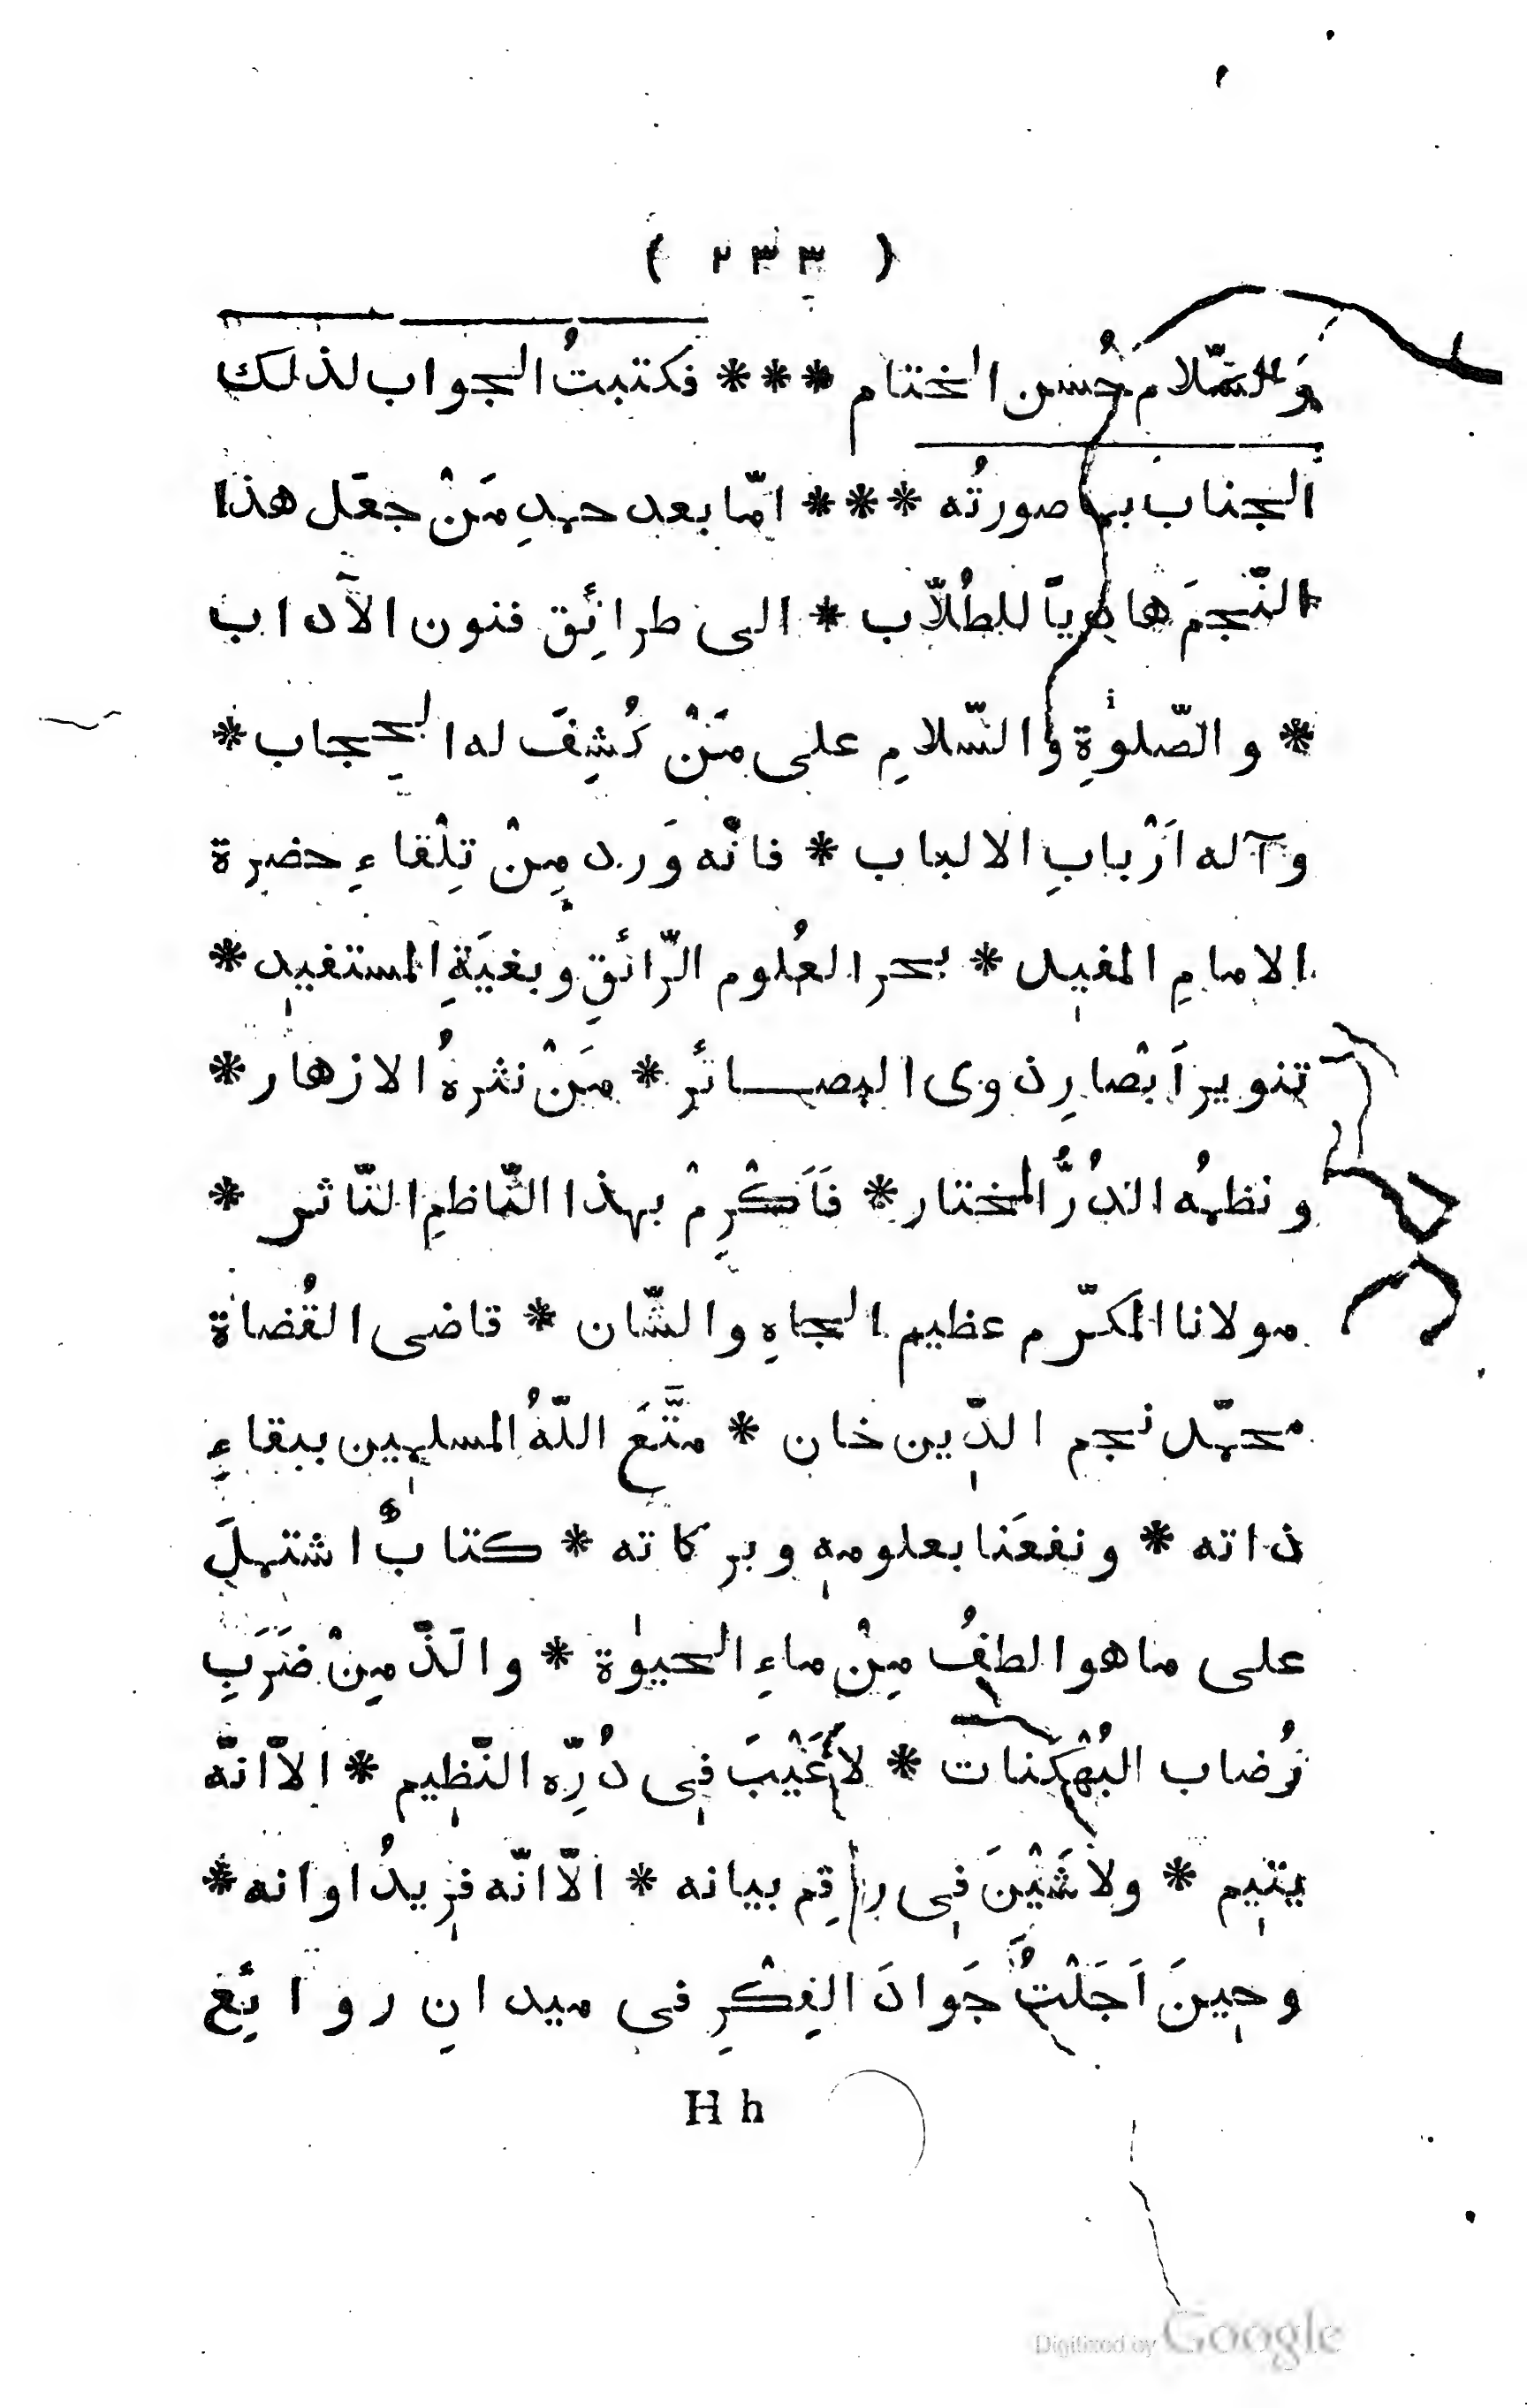 ( ٢٣٣ )
وَالسّلام حُسن الختام *** فكتبتُ الجواب لذلك
الجناب بما صورتُه *** امّا بعد حمدِ مَنْ جعَل هذا
النّجمَ هادياً للطُلّاب * الى طرائِق فنون الآداب
* والصّلوٰةِ والسّلامِ على مَنْ كُشِفَ له الحِجاب *
وآله اَرْبابِ الالباب * فانّه وَرد مِنْ تِلْقاءِ حضرة
الامامِ المفيد * بحر العُلوم الرّائقِ وبغيَةِ المستفيد *
تنوير اَبْصارِ ذوى البصائر * مَنْ نثرهُ الازهار *
ونظمُه الدُرُّ المختار * فَاَكْرِمْ بهذا النّاظمِ النّاثر *
مولانا المكرّم عظيم الجاهِ والشّان * قاضى القُضاة
محمّد نجم الدّين خان * متَّعَ اللّهُ المسلمين ببقاءِ
ذاته * ونفعَنا بعلومه وبركاته * كتابٌ اشتملَ
على ما هو الطفُ مِنْ ماءِ الحيوٰة * والَذّ مِنْ ضَرَبِ
رُضاب البُهْكَنات * لاعَيْبَ فى دُرِّه النّظيم * الاّ انّه
يتيم * ولا شَيْنَ فى راقِم بيانه * الاّ انّه فريدُ اوانه *
وحينَ اَجَلْتُ جَوادَ الفِكْرِ فى ميدانِ روائِع
H h
Digitized by Google